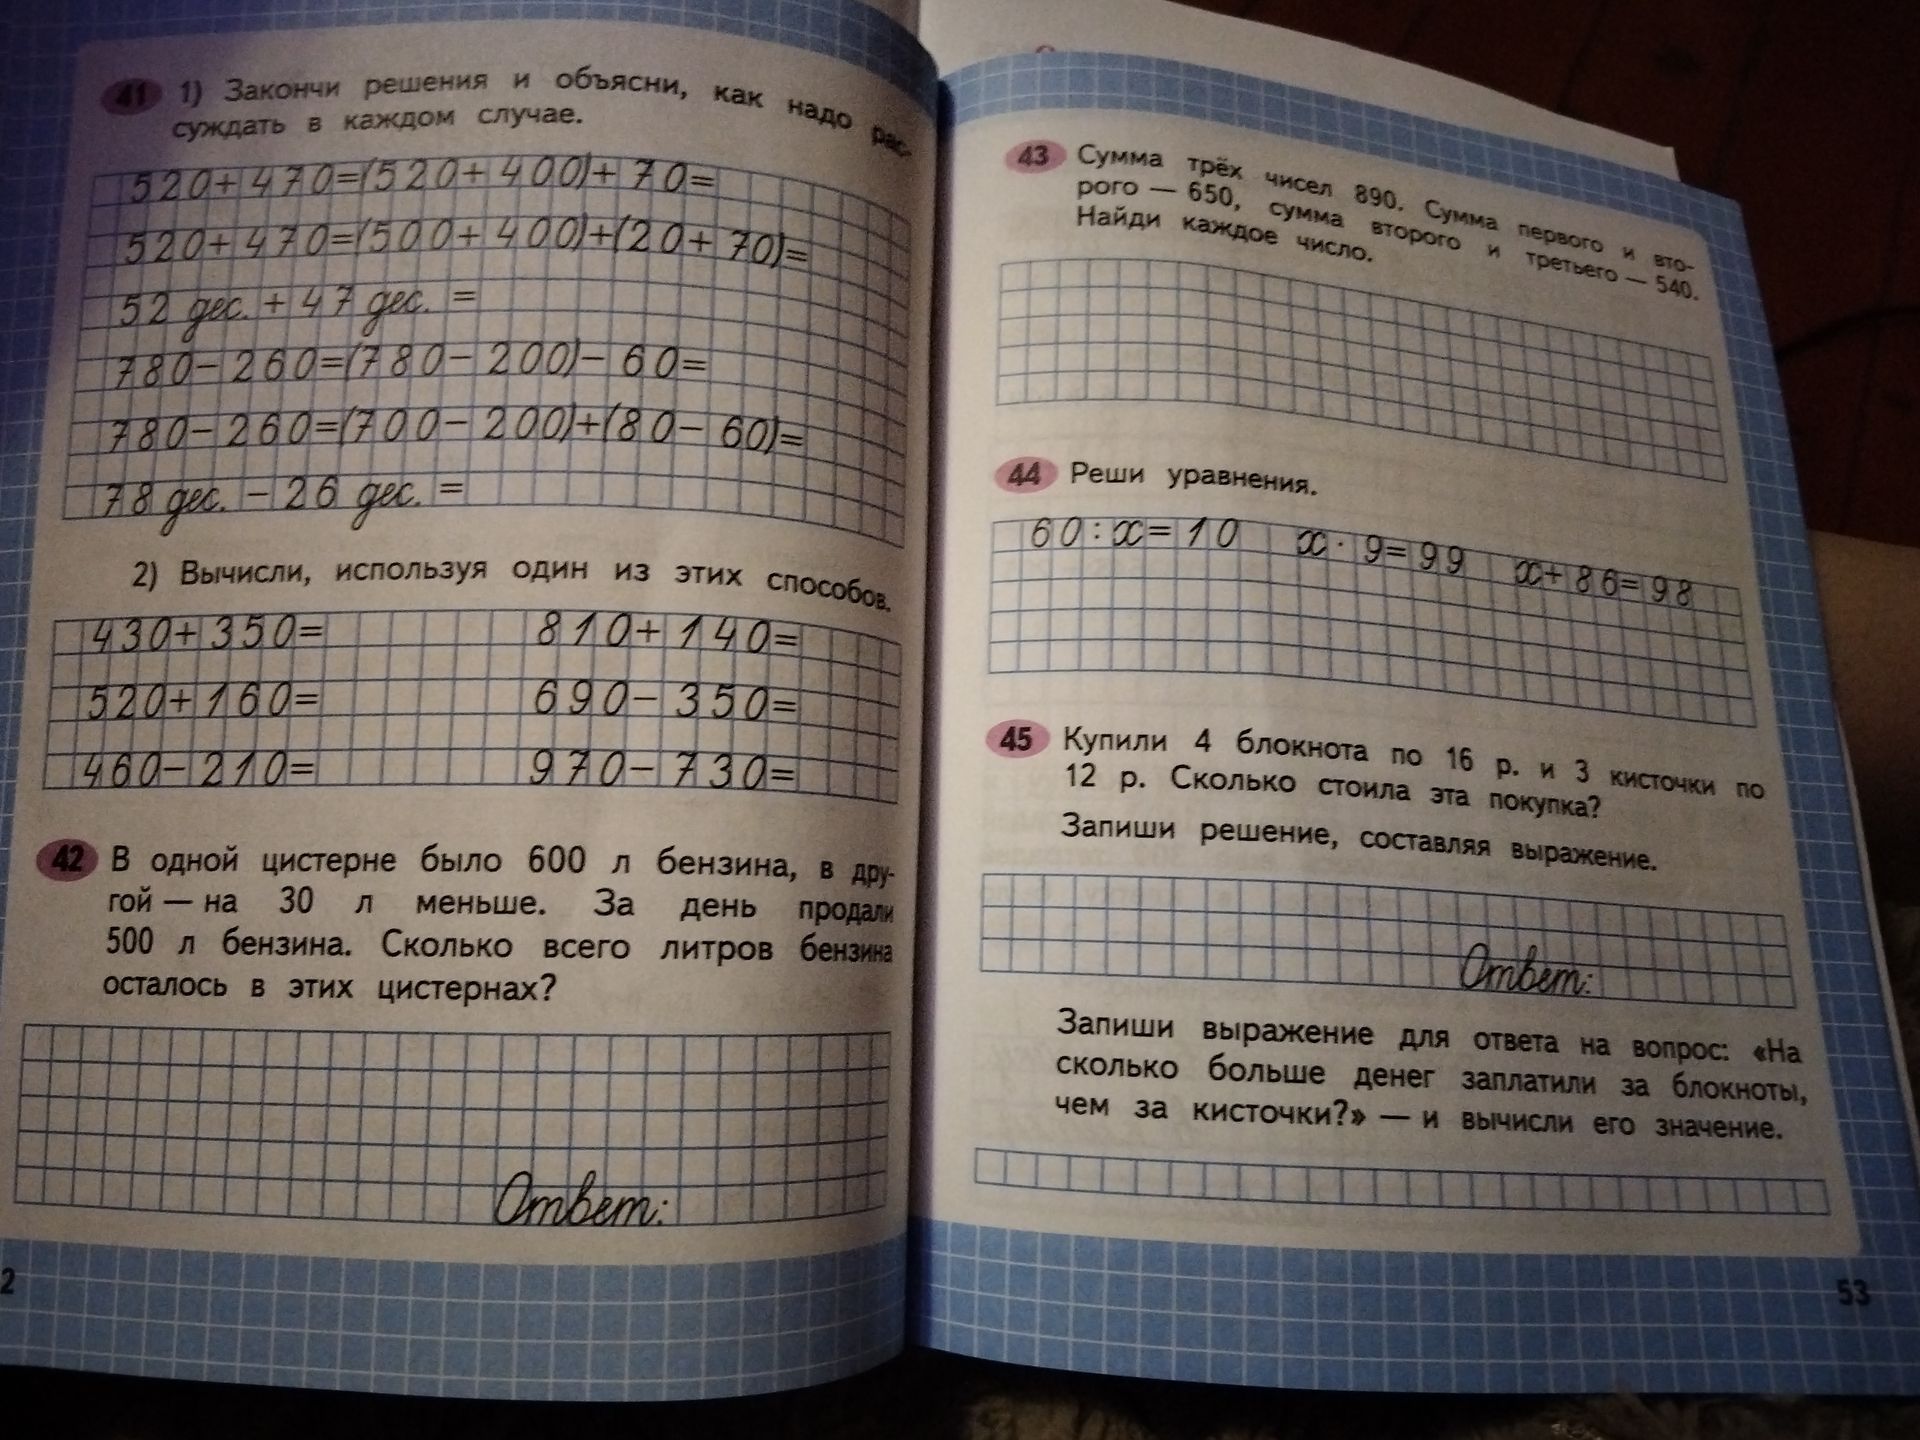 41 1) Закончи решения и объясни, как надо рас-
суждать в каждом случае.
520+470=(520+400)+70=
520+470=(500+400)+(20+70)=
52 дес. + 47 дес. =
780-260=(780-200)-60=
780-260=(700-200)+(80-60)=
78 дес. - 26 дес. =
2) Вычисли, используя один из этих способов.
430+350= 810+140=
520+160= 690-350=
460-210= 970-730=
42 В одной цистерне было 600 л бензина, в дру-
гой — на 30 л меньше. За день продали
500 л бензина. Сколько всего литров бензина
осталось в этих цистернах?
Ответ:
2
43 Сумма трёх чисел 890. Сумма первого и вто-
рого — 650, сумма второго и третьего — 540.
Найди каждое число.
44 Реши уравнения.
60:x=10 x·9=99 x+86=98
45 Купили 4 блокнота по 16 р. и 3 кисточки по
12 р. Сколько стоила эта покупка?
Запиши решение, составляя выражение.
Ответ:
Запиши выражение для ответа на вопрос: «На
сколько больше денег заплатили за блокноты,
чем за кисточки?» — и вычисли его значение.
53